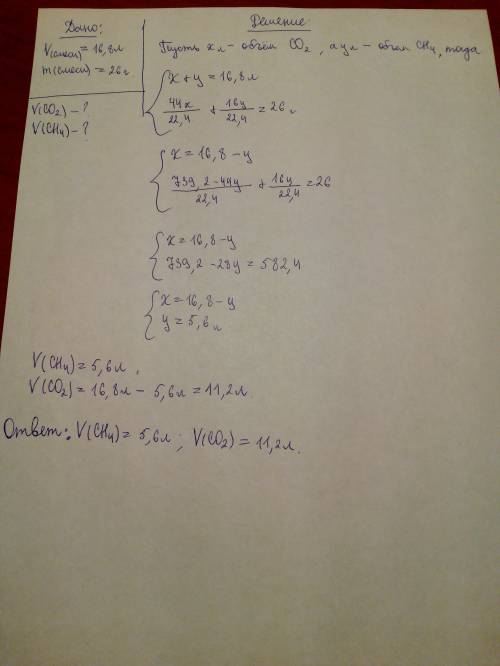 Дано:
V(смеси) = 16,8л
m(смеси) = 26г.
V(CO₂) – ?
V(CH₄) – ?
Решение:
Пусть x л – объём CO₂, а y л – объем CH₄, тогда
x + y = 16,8л
44x/22,4 + 16y/22,4 = 26г
x = 16,8 – y
739,2 – 44y/22,4 + 16y/22,4 = 26
x = 16,8 – y
739,2 – 28y = 582,4
x = 16,8 – y
y = 5,6л
V(CH₄) = 5,6л.
V(CO₂) = 16,8л – 5,6л = 11,2л.
Ответ: V(CH₄) = 5,6л; V(CO₂) = 11,2л.